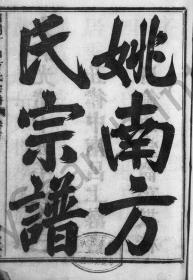 姚南方
氏宗譜